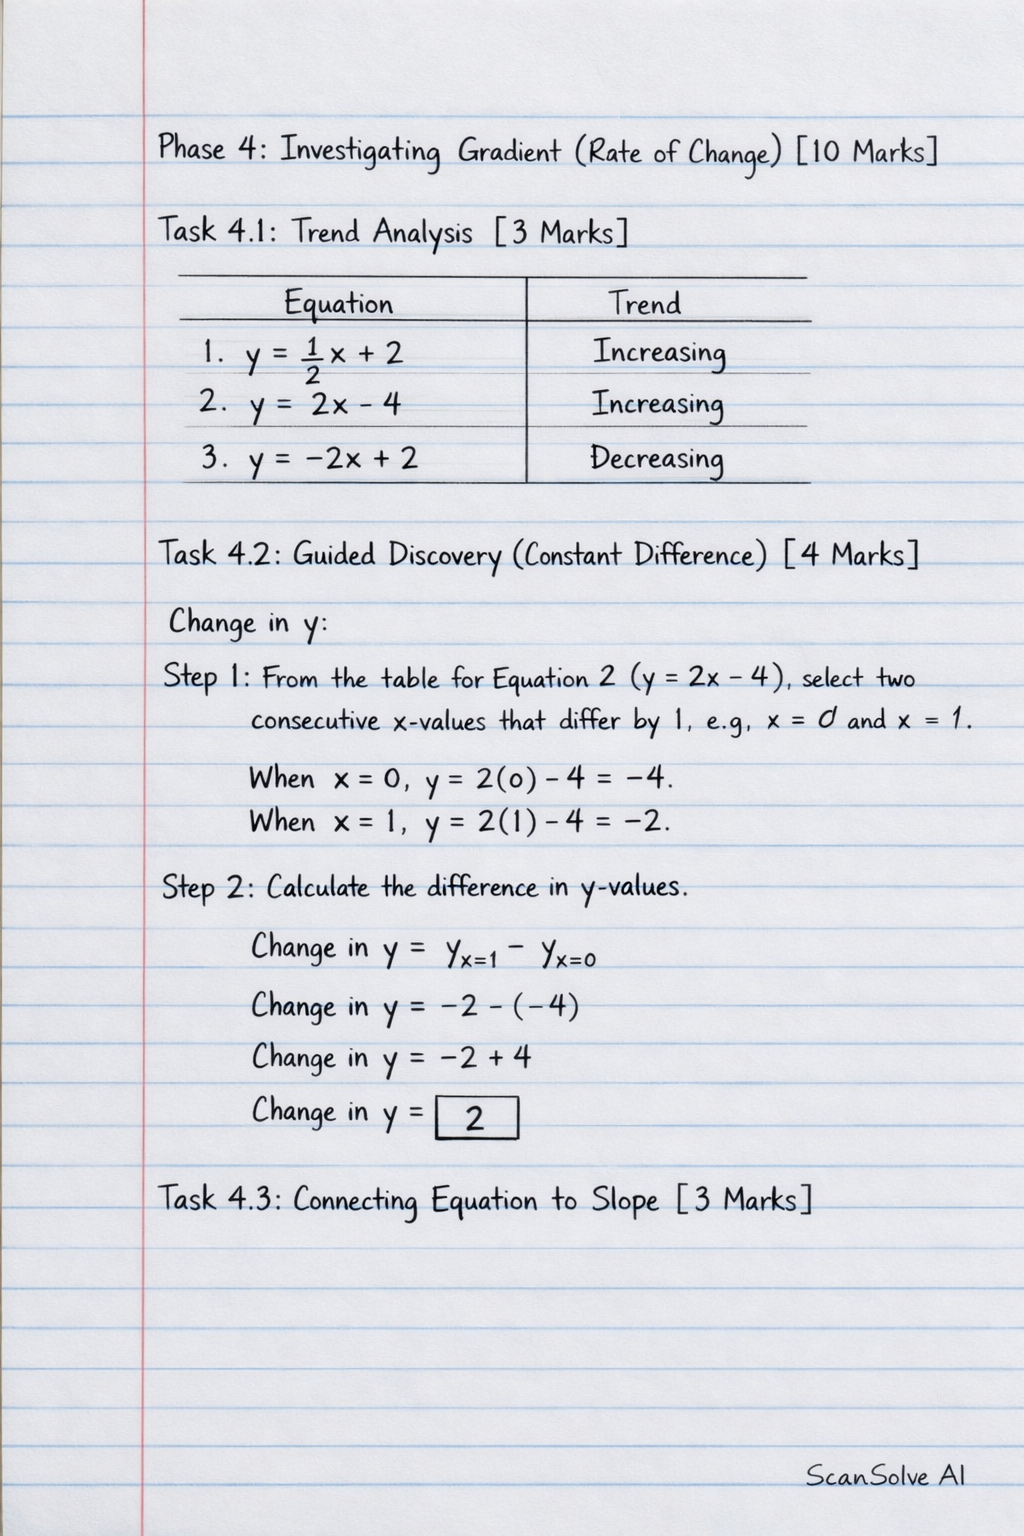 Phase 4: Investigating Gradient (Rate of Change) [10 Marks]
Task 4.1: Trend Analysis [3 Marks]
Equation Trend
1. y = 1/2 x + 2 Increasing
2. y = 2x - 4 Increasing
3. y = -2x + 2 Decreasing
Task 4.2: Guided Discovery (Constant Difference) [4 Marks]
Change in y:
Step 1: From the table for Equation 2 (y = 2x - 4), select two
consecutive x-values that differ by 1, e.g, x = 0 and x = 1.
When x = 0, y = 2(0) - 4 = -4.
When x = 1, y = 2(1) - 4 = -2.
Step 2: Calculate the difference in y-values.
Change in y = yₓ₌₁ - yₓ₌₀
Change in y = -2 - (-4)
Change in y = -2 + 4
Change in y = 2
Task 4.3: Connecting Equation to Slope [3 Marks]
ScanSolve AI